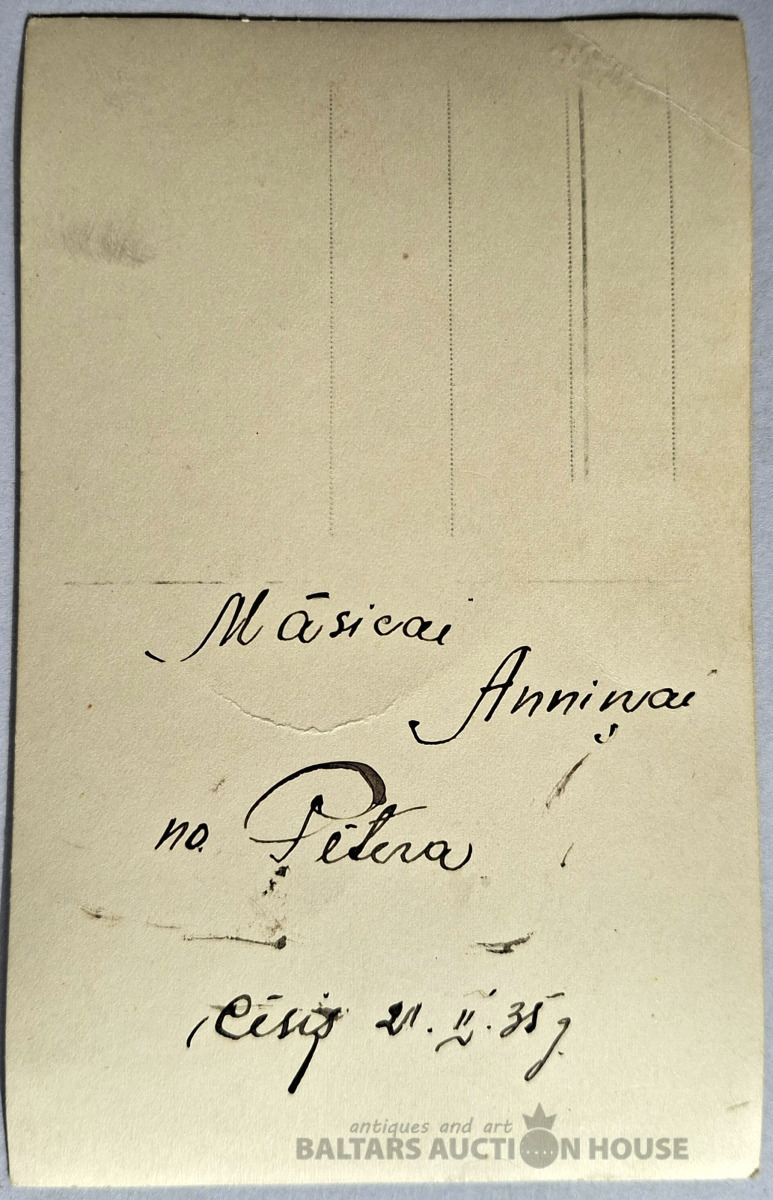 Māsicai
Anniņai
no Pētera
Cēsīs 21.II.35g.
antiques and art
BALTARS AUCTION HOUSE